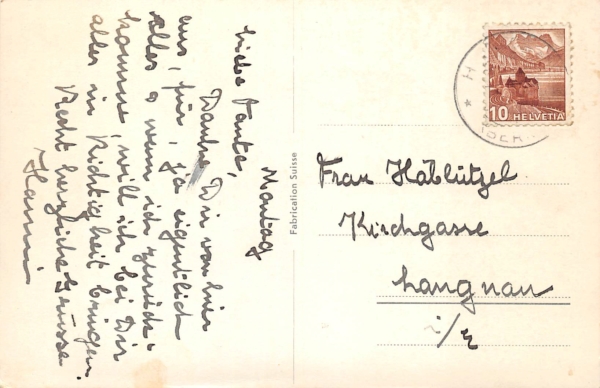 Montag
Liebe Tante,
Danke Dir von hier
aus, für, ja eigentlich
alles & wenn ich zurück-
komme, will ich bei Dir
alles in Richtigkeit bringen.
Recht herzliche Grüsse
Hanni
Fabrication Suisse
10 HELVETIA
Frau Häblützel
Kirchgasse
Langnau
i/E